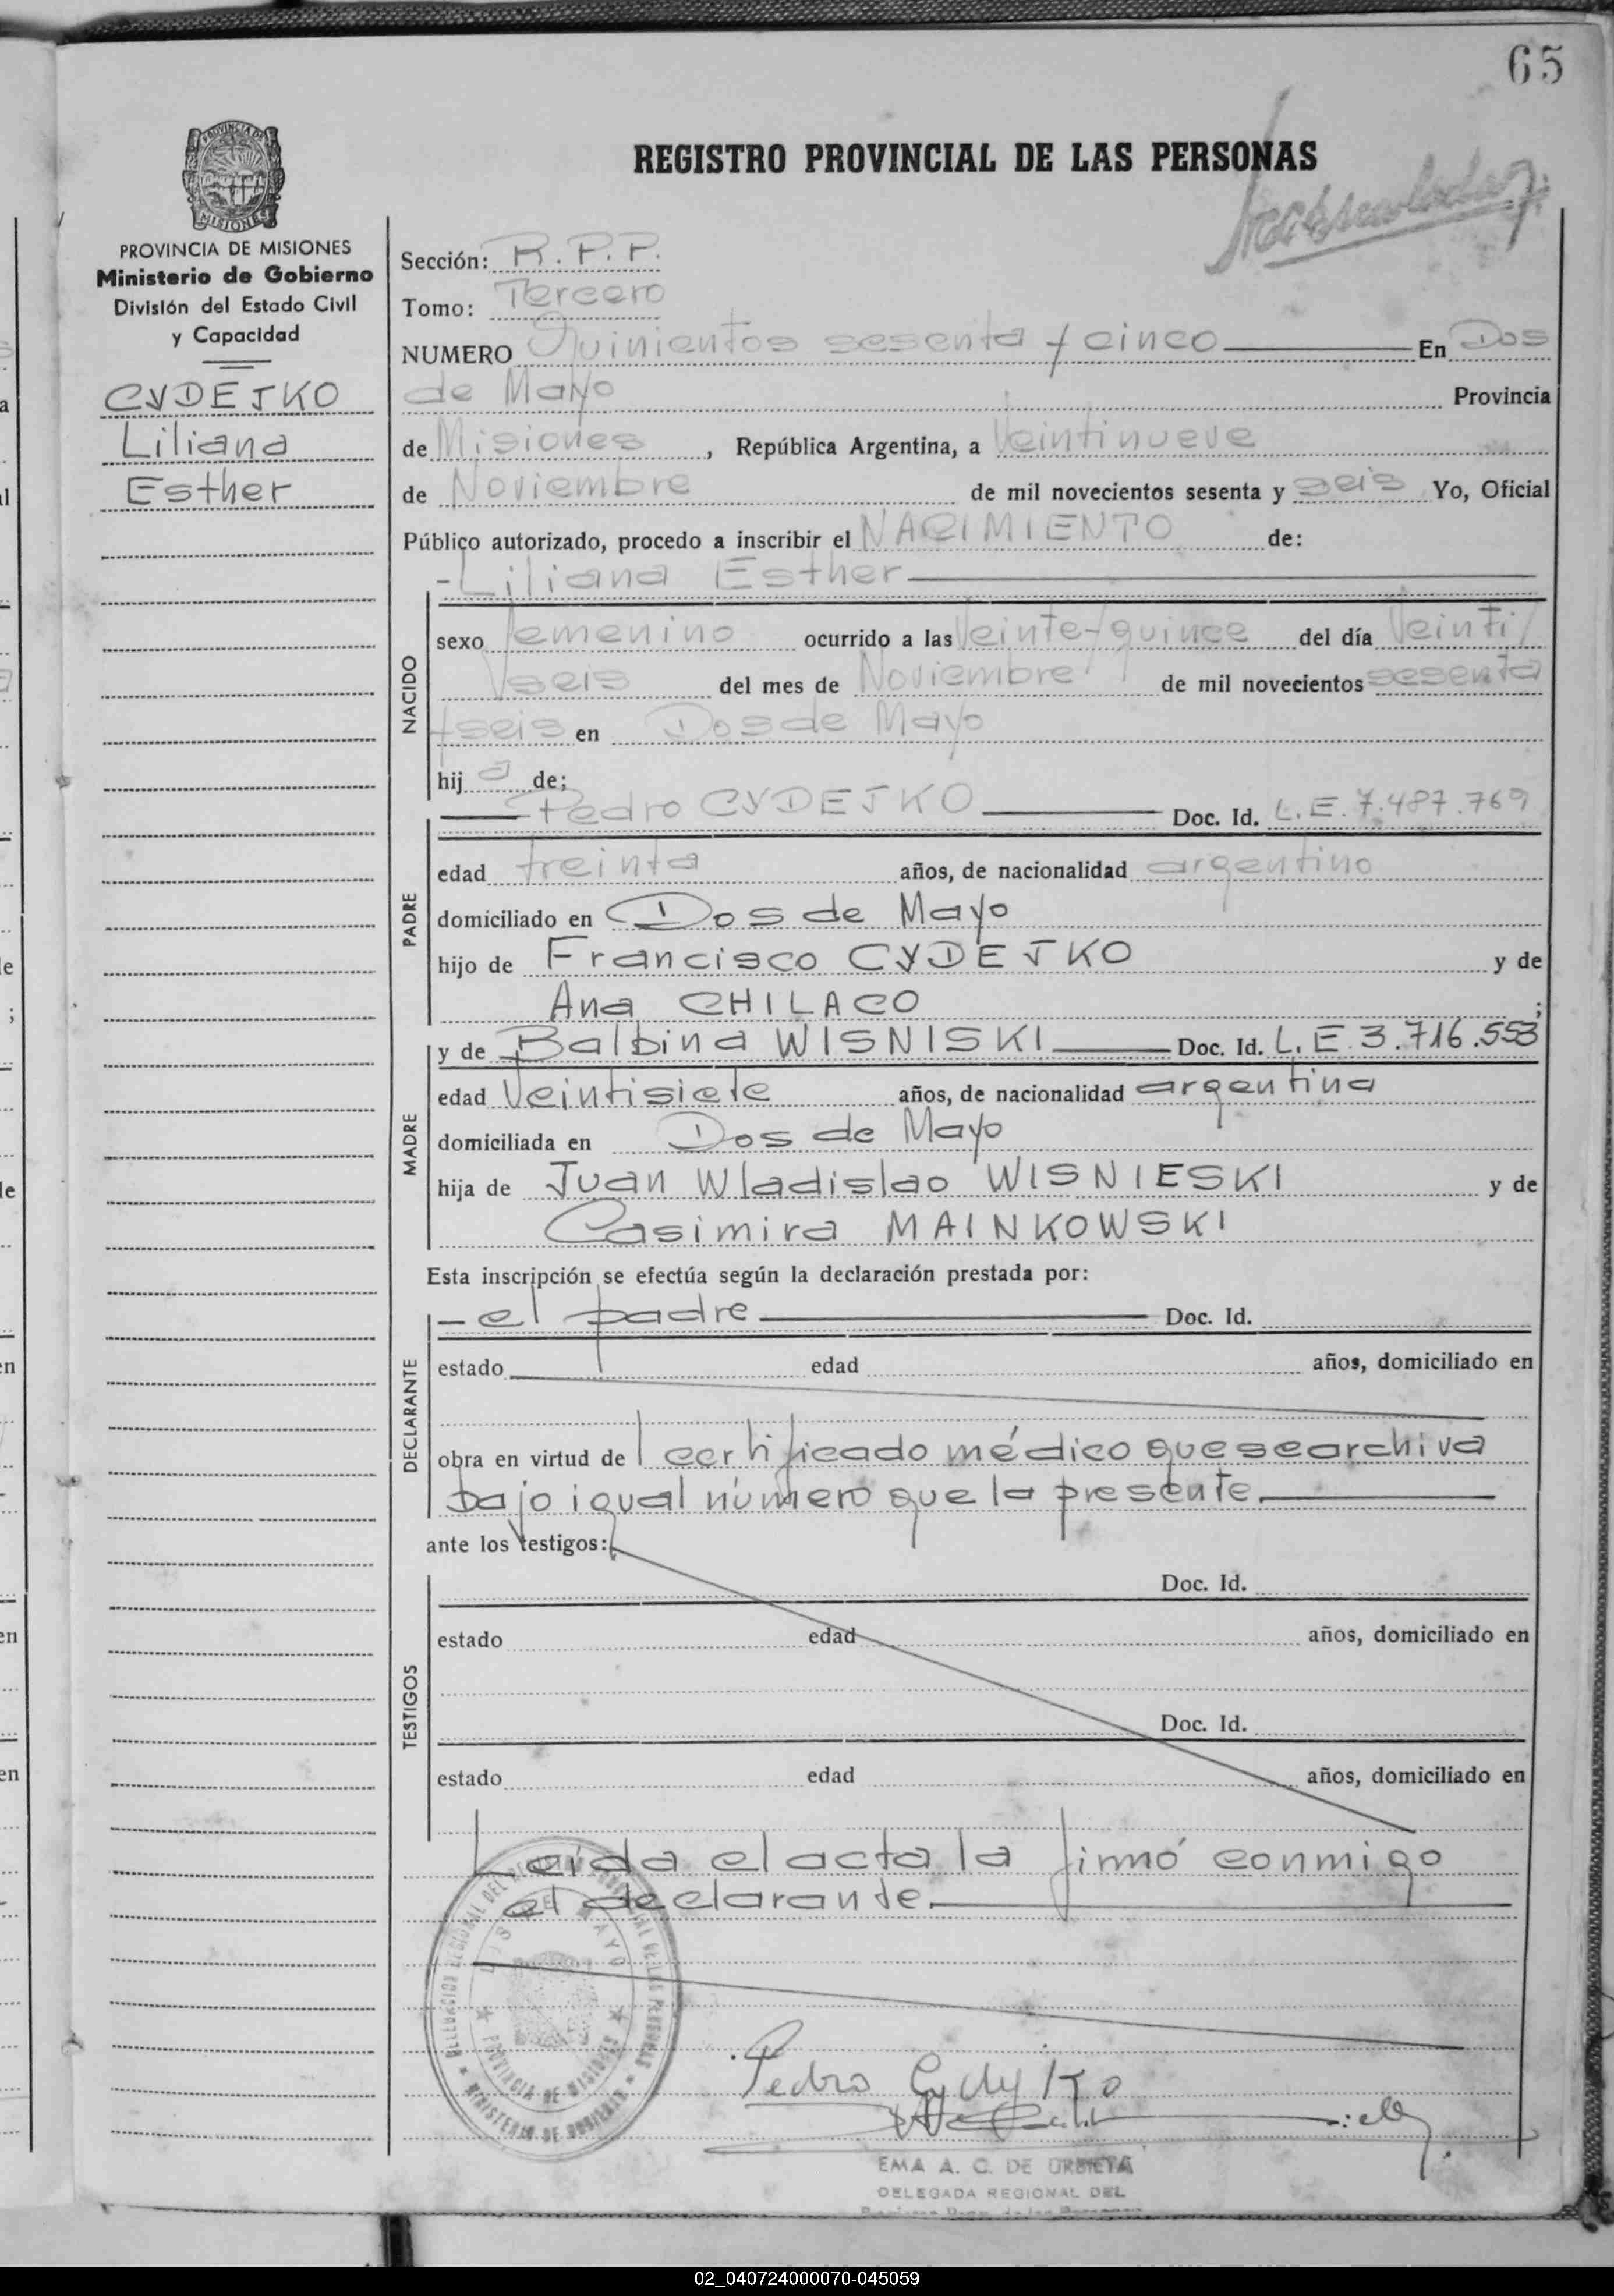 65
REGISTRO PROVINCIAL DE LAS PERSONAS
PROVINCIA DE MISIONES
Ministerio de Gobierno
División del Estado Civil
y Capacidad
CYDEJKO
Liliana
Esther
Sección: R. P. P.
Tomo: Tercero
NUMERO Quinientos sesenta y cinco En Dos
de Mayo Provincia
de Misiones, República Argentina, a Veintinueve
de Noviembre de mil novecientos sesenta y seis Yo, Oficial
Público autorizado, procedo a inscribir el NACIMIENTO de:
- Liliana Esther
NACIDO
sexo femenino ocurrido a las Veinte y quince del día Veinti/
seis del mes de Noviembre de mil novecientos sesenta
y seis en Dos de Mayo
hij a de;
PADRE
Pedro CYDEJKO Doc. Id. L.E. 7.487.769
edad treinta años, de nacionalidad argentino
domiciliado en Dos de Mayo
hijo de Francisco CYDEJKO y de
Ana CHILACO ;
MADRE
y de Balbina WISNISKI Doc. Id. L.E 3.716.553
edad Veintisiete años, de nacionalidad argentina
domiciliada en Dos de Mayo
hija de Juan Wladislao WISNIESKI y de
Casimira MAINKOWSKI
Esta inscripción se efectúa según la declaración prestada por:
DECLARANTE
- el padre Doc. Id.
estado edad años, domiciliado en
obra en virtud de l certificado médico que se archiva
bajo igual número que la presente.
ante los testigos:
TESTIGOS
Doc. Id.
estado edad años, domiciliado en
Doc. Id.
estado edad años, domiciliado en
Leída el acta la firmó conmigo
el declarante.
DOS DE MAYO
PROVINCIA DE MISIONES
MINISTERIO DE GOBIERNO
Pedro Cydyko
EMA A. C. DE URBIETA
DELEGADA REGIONAL DEL
02_040724000070-045059